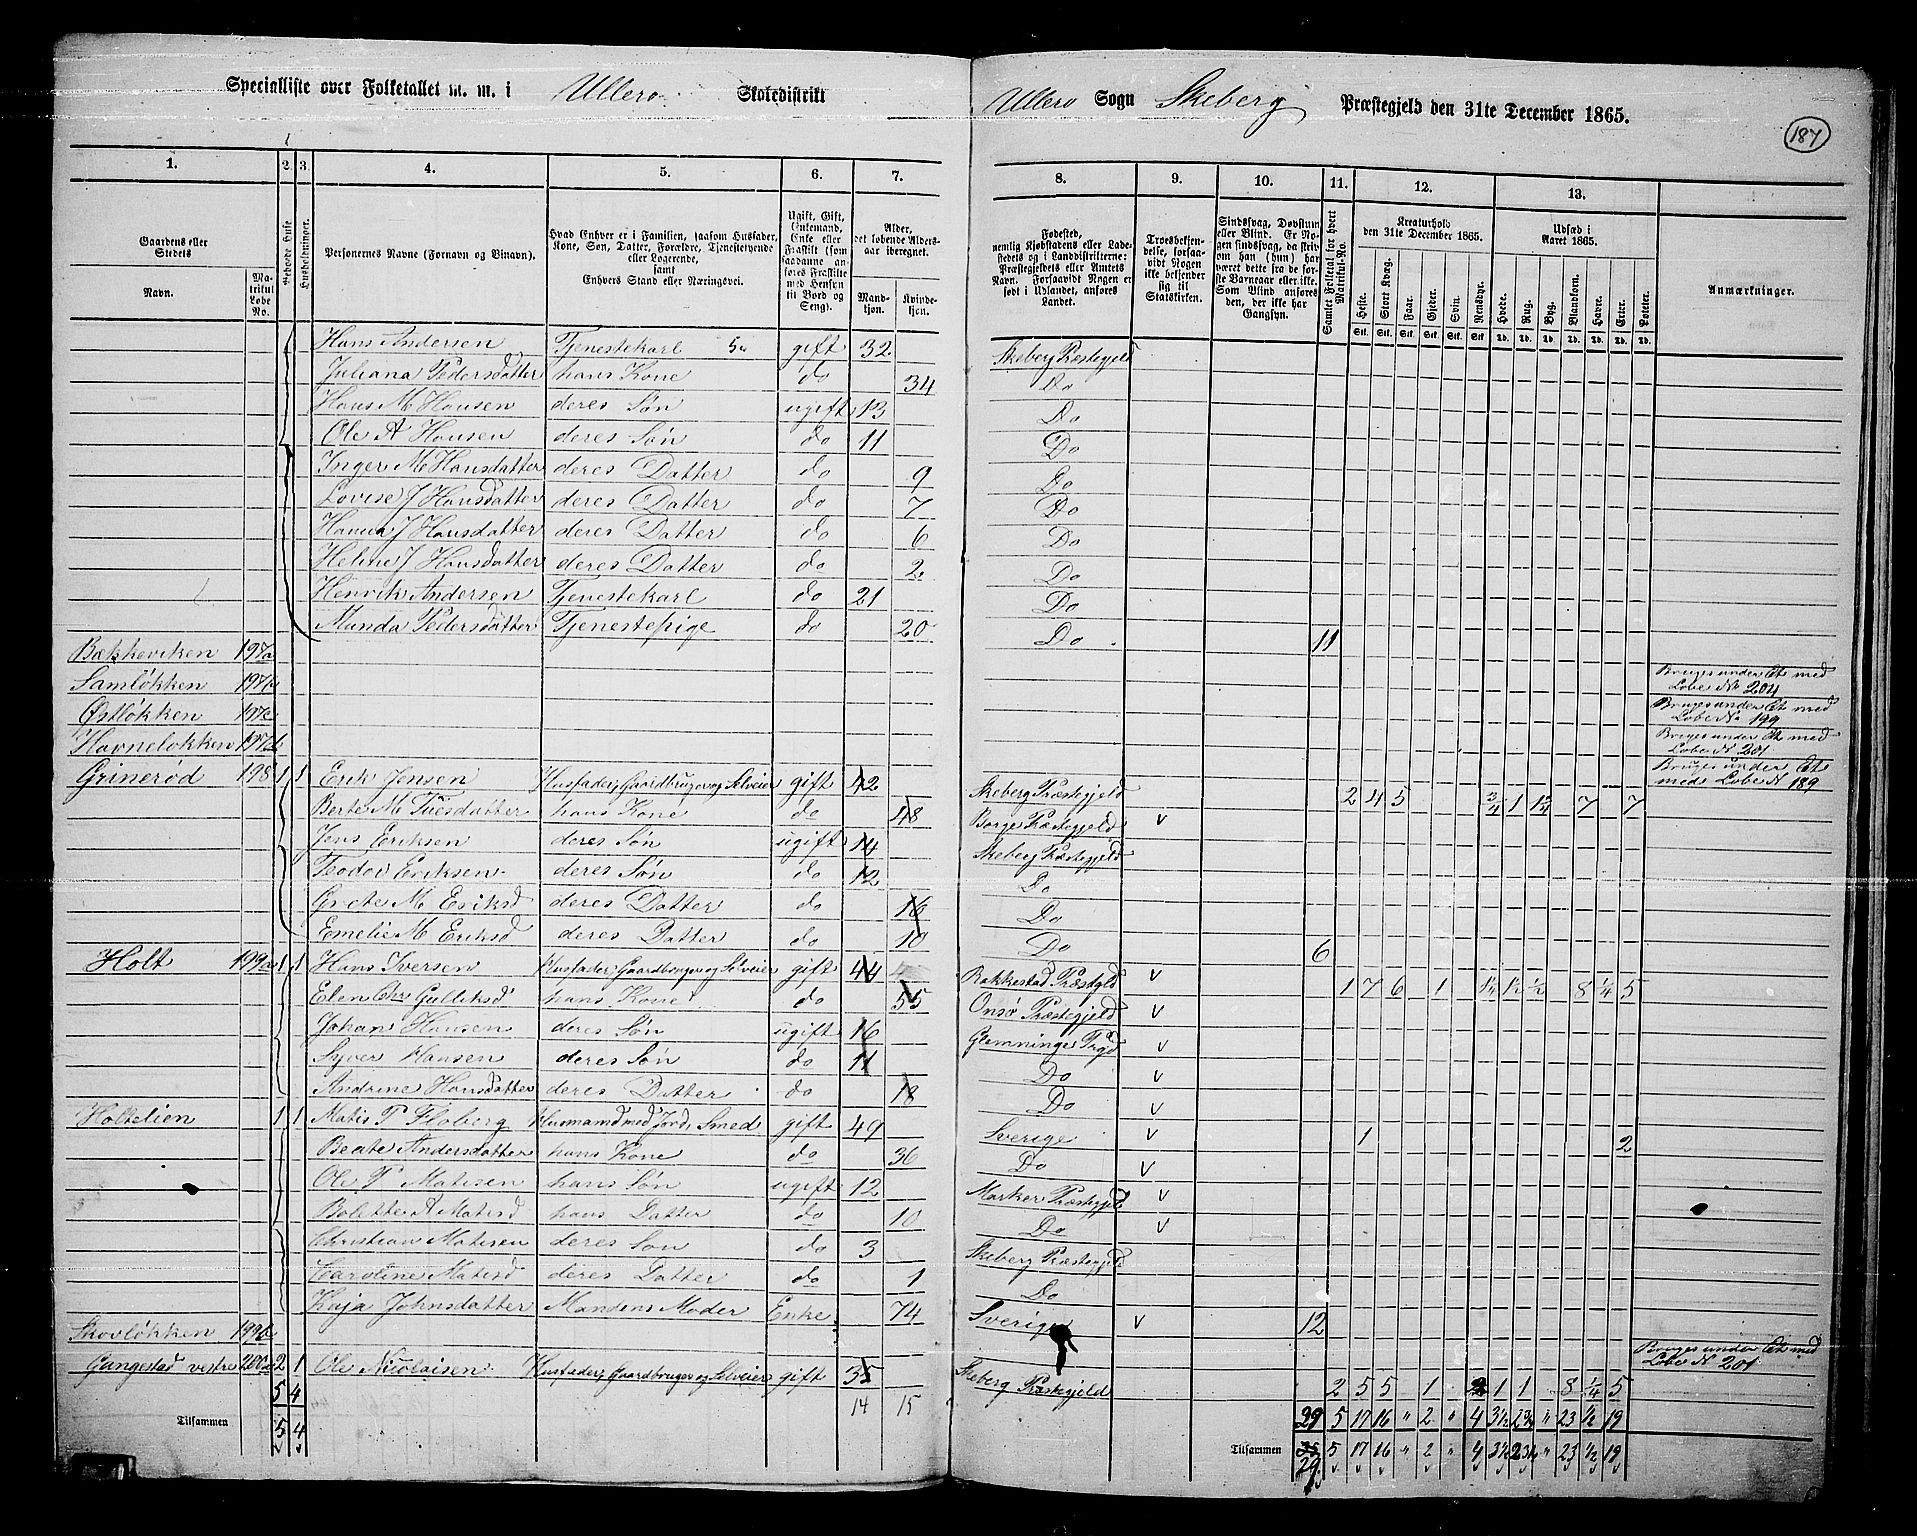 Specialliste over Folketallet m. m. i Ullerø Skoledistrikt Ullerø Sogn Skeberg Præstegjeld den 31te December 1865.
187
1. 2. 3. 4. 5. 6. 7. 8. 9. 10. 11. 12. 13.
Gaardens eller Stedets Navn. Matrikul Løbe No. Beboede Huse Husholdninger.
Personernes Navne (Fornavn og Vinavn).
Hvad Enhver er i Familien, saasom Husfader, Kone, Søn, Datter, Forældre, Tjenestetyende eller Logerende, samt Enhvers Stand eller Næringsvei.
Ugift, Gift, Enkemand, Enke eller Fraskilt (som saadanne anføres Fraskilte med Hensyn til Bord og Seng).
Alder, det løbende Aldersaar iberegnet. Mandkjøn. Kvindekjøn.
Fødested, nemlig Kjøbstadens eller Ladestedets og i Landdistrikterne: Præstegjeldets eller Amtets Navn. Forsaavidt Nogen er født i Udlandet, anføres Landet.
Troesbekjendelse, forsaavidt Nogen ikke bekjender sig til Statskirken.
Sindssvag, Døvstum eller Blind. Er Nogen sindssvag, da skrives om han (hun) har været dette fra de første Barneaar eller ikke. Som Blind anføres den, der ikke har Gangsyn.
Samlet Folketal for hvert Matrikul-No.
Kreaturhold den 31te December 1865. Heste. Stort Kvæg. Faar. Gjeder. Svin. Rensdyr.
Udsæd i Aaret 1865. Hvede. Rug. Byg. Blandkorn. Havre. Erter. Poteter.
Anmærkninger.
Hans Andersen Tjenestekarl gift 32 Skeberg Præstegjeld
Juliana Pedersdatter hans Kone do 34 Do
Hans M Hansen deres Søn ugift 13 Do
Ole A Hansen deres Søn do 11 Do
Inger M Hansdatter deres Datter do 9 Do
Lovise J Hansdatter deres Datter do 7 Do
Hanna J Hansdatter deres Datter do 6 Do
Heline J Hansdatter deres Datter do 2 Do
Henrik Andersen Tjenestekarl do 21 Do
Manda Pedersdatter Tjenestepige do 20 Do 11
Bækkeviken 197a
Samløkken 197b Bruges under Et med Løbe No 204
Østløkken 197c Bruges under Et med Løbe No 199
Havneløkken 197d Bruges under Et med Løbe N 201
Grinerød 198 1 1 Erik Jensen Husfader, Gaardbruger og Selveier gift 42 Skeberg Præstegjeld 2 4 5 3/4 1 1 3/4 7 7 Bruges under Et med Løbe N 189
Berte M Tuesdatter hans Kone do 48 Borge Præstegjeld v
Jens Eriksen deres Søn ugift 14 Skeberg Præstegjeld
Teodor Eriksen deres Søn do 12 Do
Grete M Eriksd deres Datter do 16 Do
Emelie M Eriksd deres Datter do 10 Do 6
Holt 199a 1 1 Hans Iversen Husfader, Gaardbruger og Selveier gift 44 Rakkestad Præstgld v 1 7 6 1 1/4 1/2 1/2 8 1/4 5
Elen Chr Gulliksd hans Kone do 55 Onsø Præstegjeld v
Johan Hansen deres Søn ugift 16 Glemminge Prgd v
Syver Hansen deres Søn do 11 Do v
Andrine Hansdatter deres Datter do 18 Do v
Holtelien 1 1 Matis P Floberg Husmand med Jord, Smed gift 49 Sverige v 1 2
Beate Andersdatter hans Kone do 36 Do v
Ole P Matisen hans Søn ugift 12 Marker Præstegjeld v
Bolette A Matisd hans Datter do 10 Do v
Christian Matisen deres Søn do 3 Skeberg Præstegjeld
Caroline Matisd deres Datter do 1 Do
Kaja Johnsdatter Mandens Moder Enke 74 Sverige v 12
Skovløkken 199b Bruges under Et med Løbe N 201
Gungestad vestre 200a 2 1 Ole Nicolaisen Husfader, Gaardbruger og Selveier gift 35 Skeberg Præstegjeld 2 5 5 1 2 1 1 8 1/4 5
5 4 14 15 29 5 17 16 " 2 " 4 3 1/2 2 3/4 " 23 1/2 19
Tilsammen 5 4 Tilsammen 29 5 17 16 " 2 " 4 3 1/2 2 3/4 " 23 1/2 19